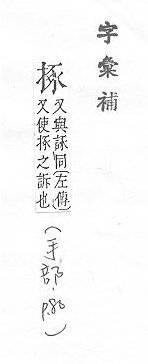 字彙補
㧻 又與諑同(左傳)
又使㧻之訴也
(手部·P80)